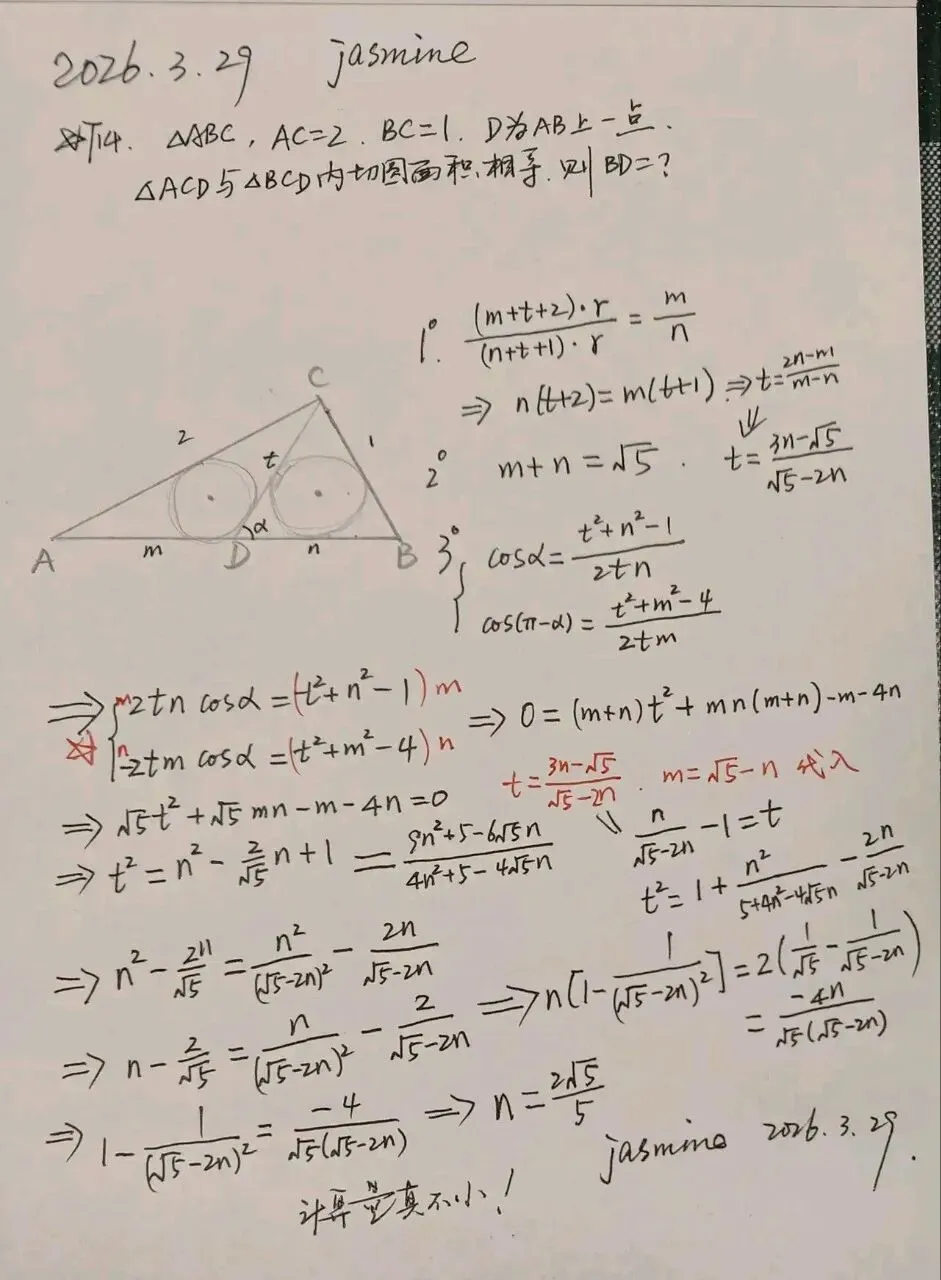 2026.3.29 jasmine
T14. △ABC, AC=2. BC=1. D为AB上一点.
△ACD与△BCD内切圆面积相等.则BD=?
1°. ((m+t+2)·r)/((n+t+1)·r) = m/n
⇒ n(t+2)=m(t+1) ⇒ t=(2n-m)/(m-n)
2° m+n=√5. t=(3n-√5)/(√5-2n)
C
2
t
1
α
A
m
D
n
B
3° { cosα=(t²+n²-1)/(2tn)
cos(π-α)=(t²+m²-4)/(2tm)
⇒ { m 2tn cosα=(t²+n²-1)m
n -2tm cosα=(t²+m²-4)n ⇒ 0=(m+n)t²+mn(m+n)-m-4n
t=(3n-√5)/(√5-2n). m=√5-n 代入
⇒ √5t²+√5mn-m-4n=0
n/(√5-2n) -1=t
⇒ t²=n²-(2/√5)n+1 = (9n²+5-6√5n)/(4n²+5-4√5n)
t²=1+n²/(5+4n²-4√5n) - 2n/(√5-2n)
⇒ n²-2n/√5=n²/(√5-2n)² - 2n/(√5-2n)
⇒ n-2/√5=n/(√5-2n)² - 2/(√5-2n) ⇒ n[1-1/(√5-2n)²]=2(1/√5-1/(√5-2n))
=-4n/(√5(√5-2n))
⇒ 1-1/(√5-2n)²=-4/(√5(√5-2n)) ⇒ n=2√5/5
jasmine 2026.3.29.
计算量真不小!